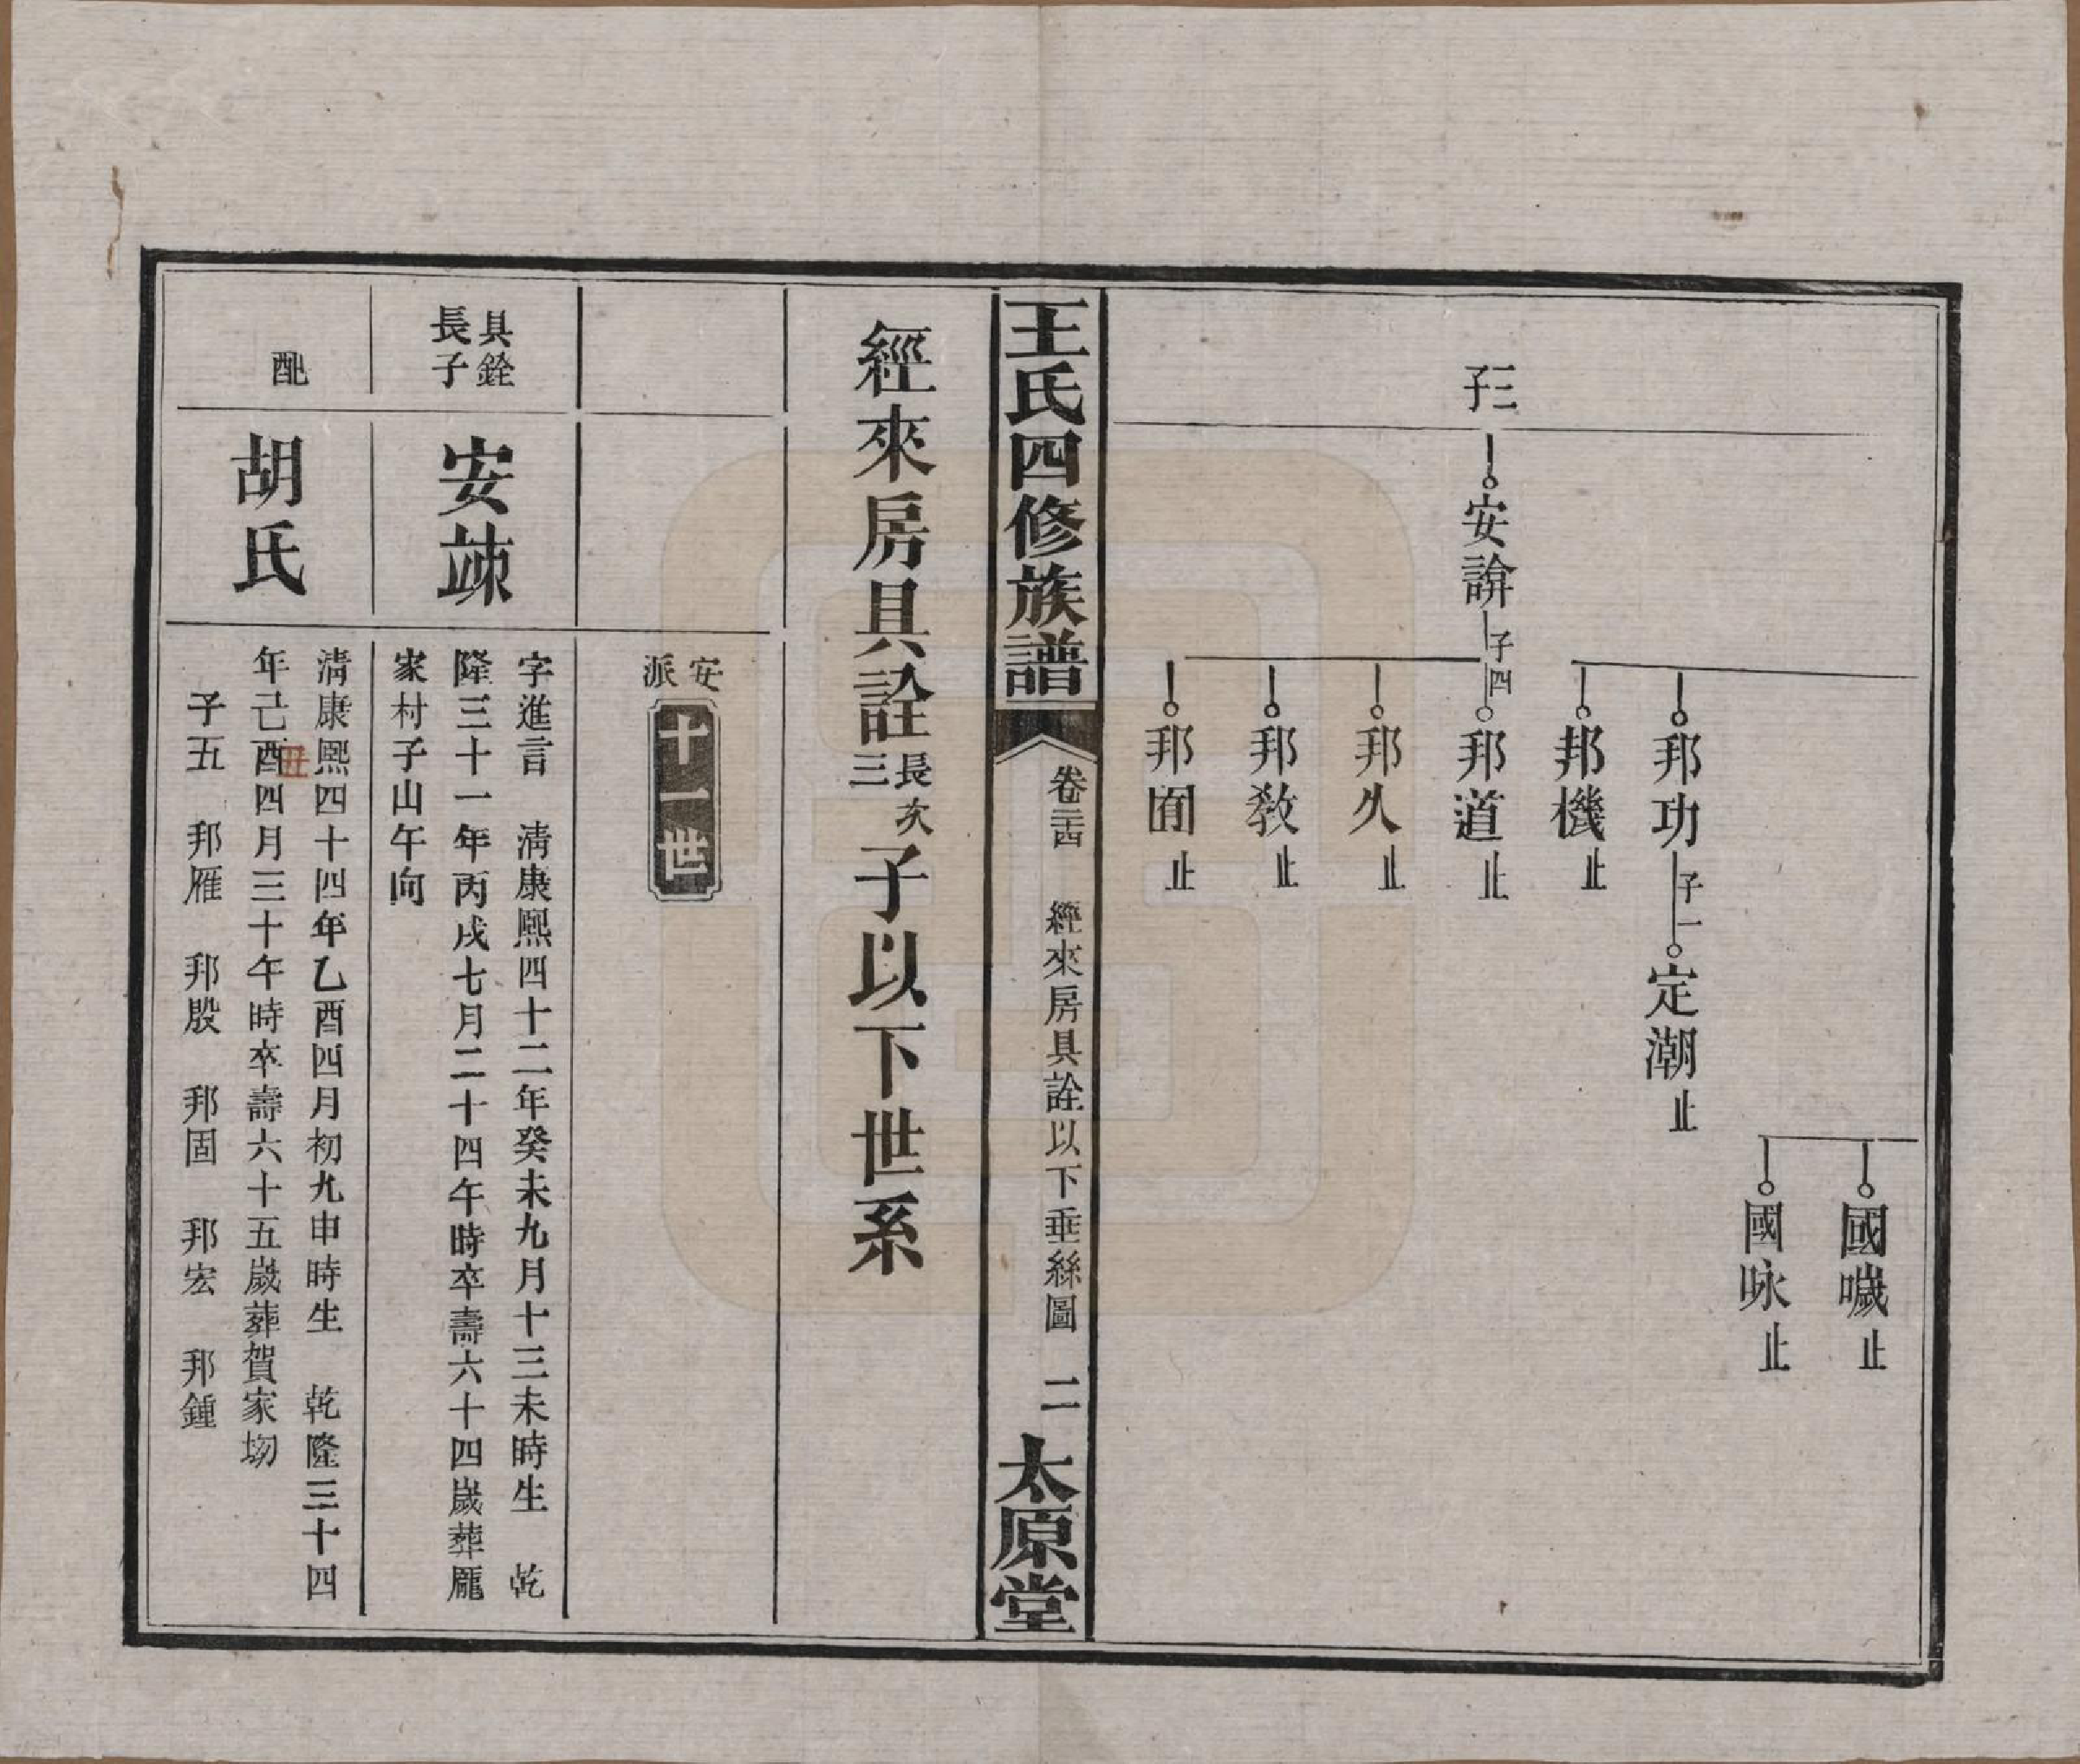 三子
安諭
子四
國嚱止
國咏止
邦功
子一
定潮止
邦機止
邦道止
邦久止
邦教止
邦囿止
王氏四修族譜
卷三西
經來房具詮以下垂絲圖
二
太原堂
經來房具詮長次三子以下世系
安派
十一世
具銓長子
安竦
字進言 淸康熙四十二年癸未九月十三未時生 乾
隆三十一年丙戌七月二十四午時卒壽六十四歲葬龎
家村子山午向
配
胡氏
淸康熙四十四年乙酉四月初九申時生 乾隆三十四
年己酉四月三十午時卒壽六十五歲葬賀家㘬
丑
子五 邦雁 邦殷 邦固 邦宏 邦鍾